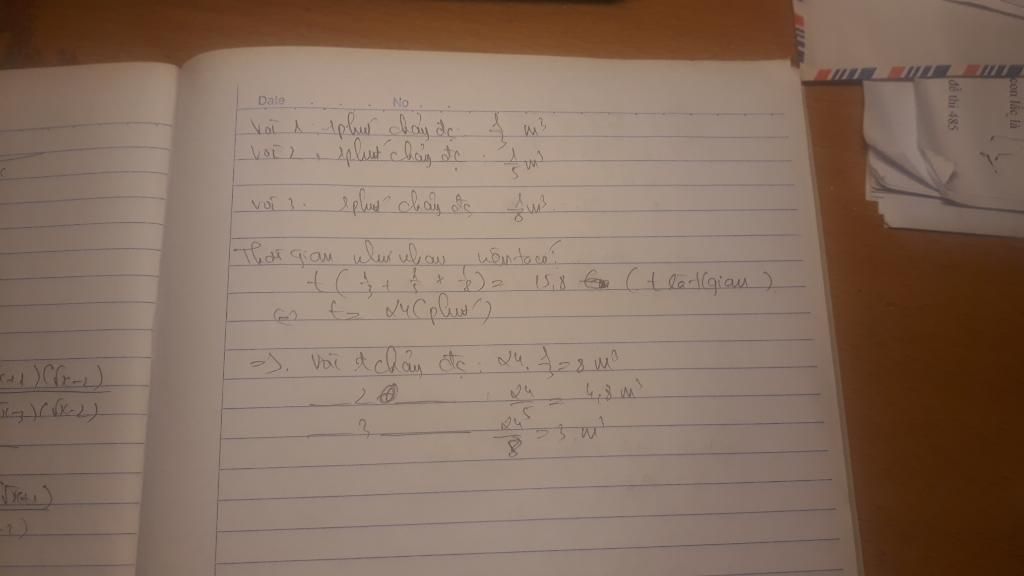 Date No
Vòi 1: 1 phút chảy đc: 1/3 m³
Vòi 2: 1 phút chảy đc: 1/5 m³
Vòi 3: 1 phút chảy đc 1/8 m³
Thời gian như nhau nên ta có:
t(1/3 + 1/5 + 1/8) = 15,8 (t là t/gian)
⇔ t = 24 (phút)
=> Vòi 1 chảy đc: 24. 1/3 = 8 m³
2 24/5 = 4,8 m³
3 24/8 = 3 m³
x+1)(√x-2)
√x-3)(√x-2)
√x+1)
con lốc là
đề thi 485